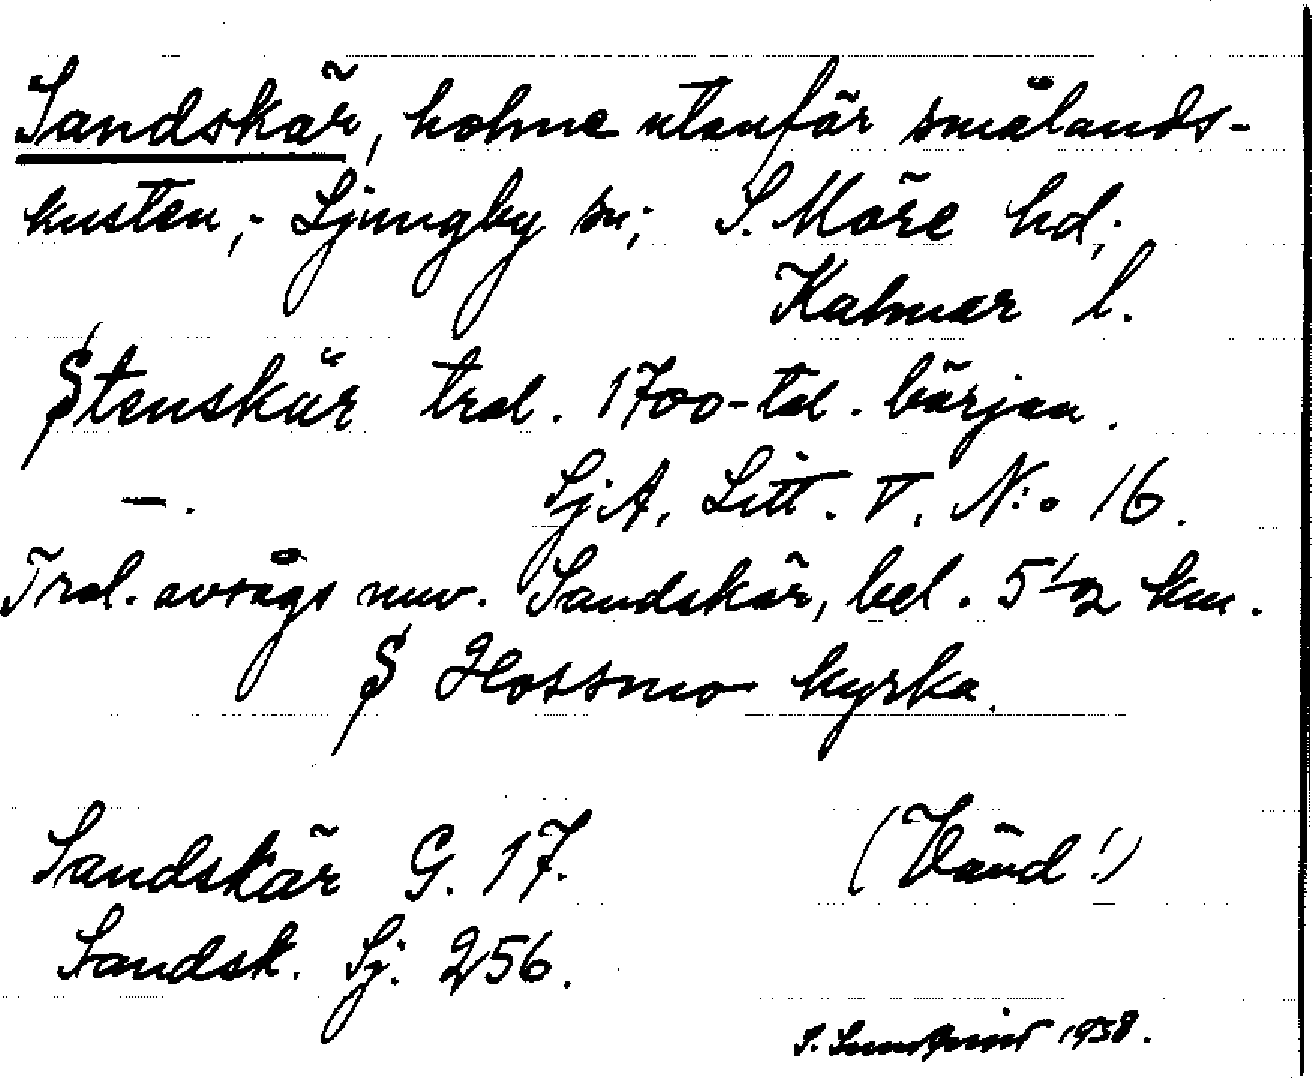 Sandskär, holme utanför smålands-
kusten; Ljungby sn; S. Möre hd;
Kalmar l.
Stenskär trol. 1700-tal. början.
— . SjA. Litt. T. N:o 16.
Trol. avsågs nuv. Sandskär, bel. 5 1/2 km.
S Hossmo kyrka.
Sandskär G. 17. (Vänd!)
Sandsk. Sj. 256.
S. 1938.